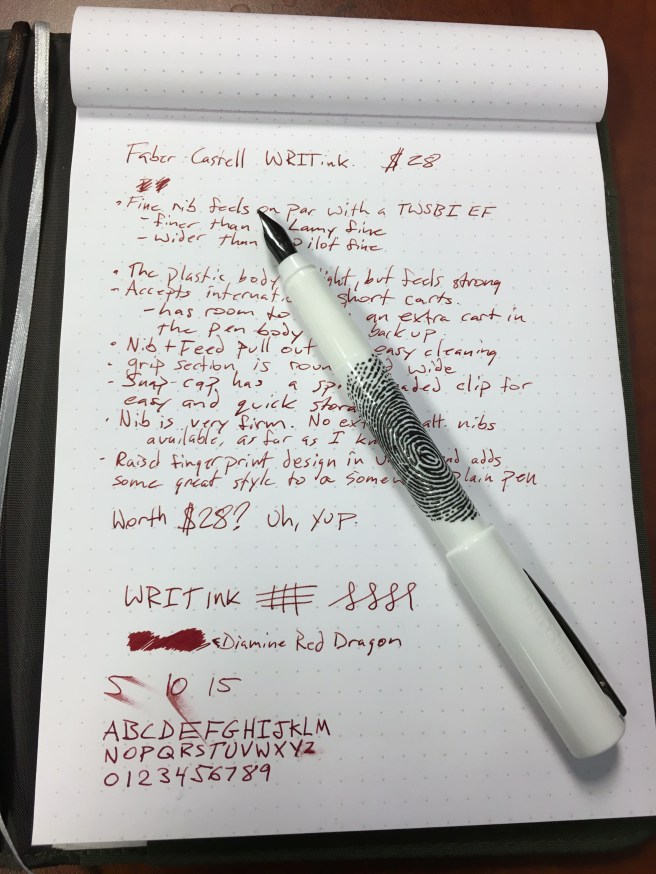 Faber Castell WRITink. $28
• Fine nib feels on par with a TWSBI EF
- finer than Lamy fine
- wider than pilot fine
• The plastic body light, but feels strong
- Accepts internati short carts.
- has room to an extra cart in
the pen body back up
• Nib + Feed pull out easy cleaning
• grip section is roun d wide
- Snap-cap has a sp aded clip for
easy and quick stora
• Nib is very firm. No ex alt. nibs
available, as far as I kn
- Raised fingerprint design in u nd adds
some great style to a somew plain pen
Worth $28? Uh, yup.
WRITink
Diamine Red Dragon
5 10 15
ABCDEFGHIJKLM
NOPQRSTUVWXYZ
0123456789